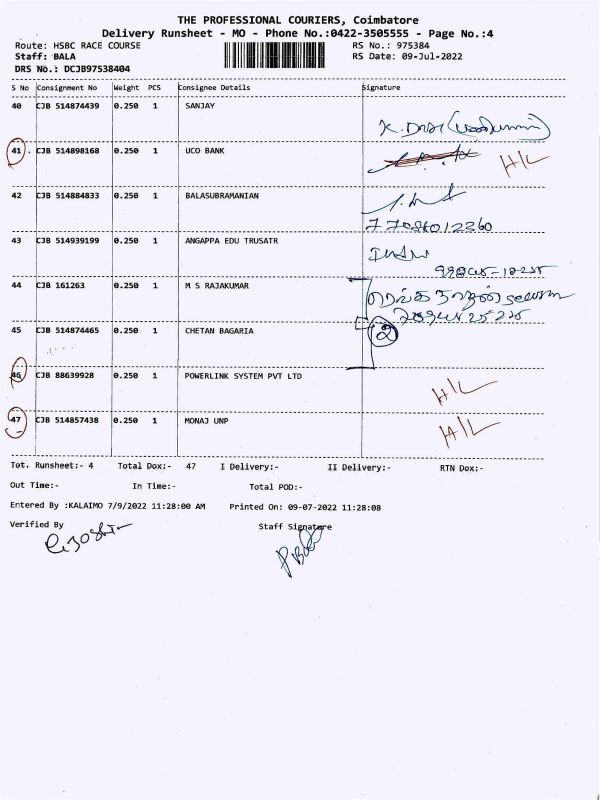 THE PROFESSIONAL COURIERS, Coimbatore
Delivery Runsheet - MO - Phone No.:0422-3505555 - Page No.:4
Route: HSBC RACE COURSE RS No.: 975384
Staff: BALA RS Date: 09-Jul-2022
DRS No.: DCJB97538404
S No Consignment No Weight PCS Consignee Details Signature
40 CJB 514874439 0.250 1 SANJAY
41 CJB 514898168 0.250 1 UCO BANK H/L
42 CJB 514884833 0.250 1 BALASUBRAMANIAN
43 CJB 514939199 0.250 1 ANGAPPA EDU TRUSATR
44 CJB 161263 0.250 1 M S RAJAKUMAR
45 CJB 514874465 0.250 1 CHETAN BAGARIA 2
46 CJB 88639928 0.250 1 POWERLINK SYSTEM PVT LTD H/L
47 CJB 514857438 0.250 1 MONAJ UNP H/L
Tot. Runsheet:- 4 Total Dox:- 47 I Delivery:- II Delivery:- RTN Dox:-
Out Time:- In Time:- Total POD:-
Entered By :KALAIMO 7/9/2022 11:28:00 AM Printed On: 09-07-2022 11:28:08
Verified By Staff Signature